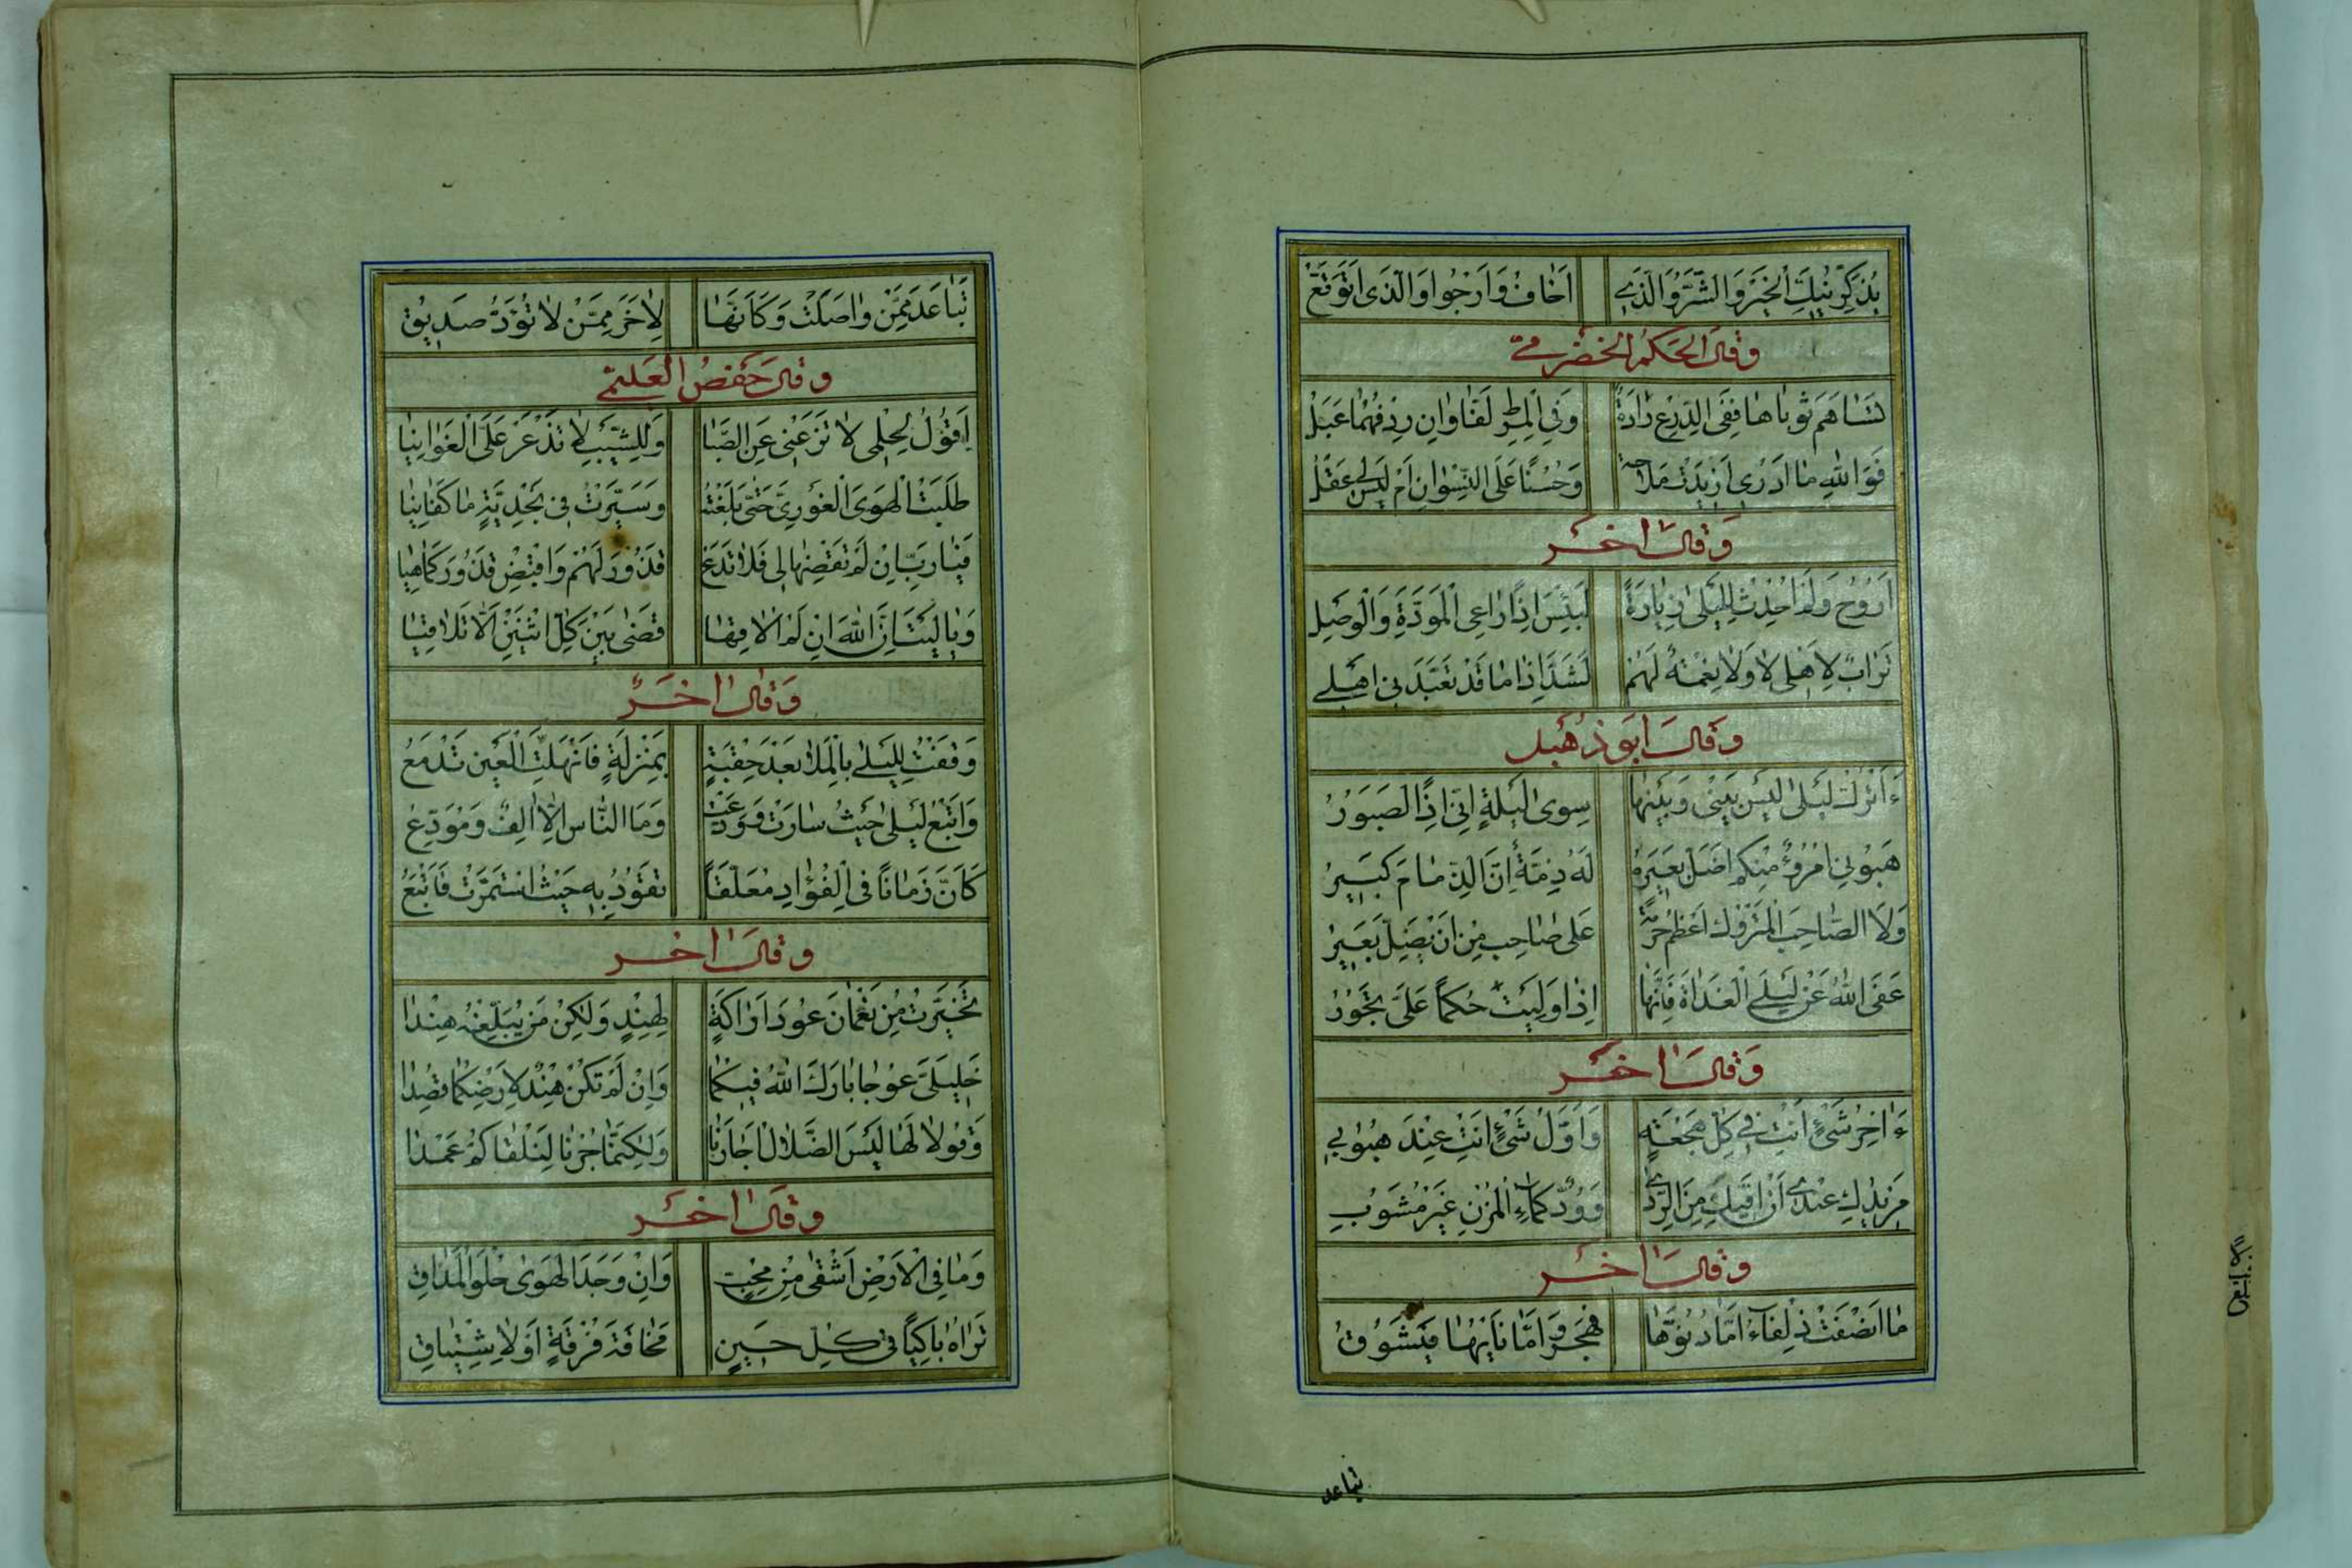 يُذَكِّرُنيكِ الخَيرُ وَالشَّرُّ وَالَّذي اَخافُ وَاَرْجُوا وَالَّذي اَتَوَقَّعُ
وَقالَ الحَكَمُ الخضرىّ
تَساهَمَ ثَوباها فَفِى الدِّرْعِ رَادَةٌ وَفِي المِرْطِ لَفّاوانِ رِدْفُهُما عَبْلُ
فَوَاللهِ ما اَدْرى اَزِيدَتْ مَلاحَةً وَحُسْناً عَلَى النِّسْوانِ اَمْ لَيسَ لِي عَقْلُ
وَقالَ اخَر
اَرُوحُ وَلَمْ اُحْدِثْ لِلَيلى زِيارَةً لَبِئْسَ اِذاً راعِى المَوَدَّةِ وَالْوَصْلِ
تُرابٌ لِاَهْلى لا وَلا نِعْمَةٌ لَهُمْ لَشَدَّ اِذا ما قَدْ تَعَبَّدَنِى اَهْلي
وَقالَ اَبُو دُهْبَل
ءَاَتْرُكُ لَيلى لَيسَ بَينى وَبَينَها سِوى لَيلَةٍ اِنّى اِذاً لَصَبُورُ
هَبُونِي امْرُؤٌ مِنْكُم اَضَلَّ بَعِيرَهُ لَهُ ذِمَّةٌ اِنَّ الذِّمامَ كَبِيرُ
وَلَا الصّاحِبُ المَتْرُوكُ اَعْظَمُ حُرْمَةً عَلى صاحِبٍ مِنْ اَنْ يَضِلَّ بَعِيرُ
عَفَى اللهُ عَنْ لَيلَى الْغَداةَ فَاِنَّها اِذا وَلِيَتْ حُكْماً عَلَىَّ تَجُورُ
وَقالَ اخَر
ءَاخِرُ شَيْءٍ اَنْتِ في كُلِّ هَجْعَةٍ وَاَوَّلُ شَيْءٍ اَنْتِ عِنْدَ هُبُوبي
مَزِيدُكِ عِنْدي اَنْ اَقِيكِ مِنَ الرَّدى وَوُدٌّ كَماءِ الْمُزْنِ غَيرُ مَشُوبِ
وَقالَ اخَر
ما اَنْصَفَتْ ذَلْفاءُ اَمّا دُنُوُّها فَهَجْرٌ وَاَمّا نَأيُها فَيَشُوقُ
تباعد
تَباعَدُ مِمَّنْ واصَلَتْ وَكَاَنَّها لِاخَرَ مِمَّنْ لا تُوَدُّ صَدِيقُ
وَقالَ حَفْصُ العُلَيمى
اَقُولُ لِحِلْمى لا تَزَعْنى عَنِ الصِّبا وَلِلشَّيبِ لا تَذْعَرْ عَلَىَّ الْغَوانِيا
طَلَبْتُ الْهَوَى الْغَورِىَّ حَتّى بَلَغْتُهُ وَسَيَّرْتُ فى نَجْدِيَّةٍ ما كَفانِيا
فَيا رَبِّ اِنْ لَمْ تَقْضِها لِى فَلا تَدَعْ قَذُورَ لَهُمْ وَاقْبِضْ قَذُورَ كَما هِيا
وَيا لَيتَ اَنَّ اللهَ اِنْ لَمْ اُلاقِها قَضى بَينَ كُلِّ اثْنَينِ اَلّا تَلاقِيا
وَقالَ اخَرُ
وَقَفْتُ لِلَيلى بِالْمَلا بَعْدَ حِقْبَةٍ بِمَنْزِلَةٍ فَانْهَلَّتِ الْعَينُ تَدْمَعُ
وَاَتْبَعُ لَيلى حَيثُ سارَتْ وَوَدَّعَتْ وَمَا النّاسُ اِلّا الِفٌ وَمُوَدِّعُ
كَاَنَّ زَماناً فى الْفُؤادِ مُعَلَّقاً تَقُودُ بِهِ حَيثُ اسْتَمَرَّتْ فَاَتْبَعُ
وَقالَ اخَر
تَخَيَّرْتُ مِنْ نَعْمانَ عُودَ اَراكَةٍ لِهِنْدٍ وَلكِنْ مَنْ يُبَلِّغُهُ هِنْدا
خَلِيلَىَّ عُوجا بارَكَ اللهُ فِيكُما وَاِنْ لَمْ تَكُنْ هِنْدٌ لِاَرْضِكُما قَصْدا
وَقُولا لَها لَيسَ الضَّلالُ اَجارَنا وَلكِنَّما جُرْنا لِنَلْقاكُمُ عَمْدا
وَقالَ اخَر
وَما فِي الْاَرْضِ اَشْقى مِنْ مُحِبٍّ وَاِنْ وَجَدَ الْهَوى حُلْوَ الْمَذاقِ
تَراهُ باكِياً فى كُلِّ حِينٍ مَخافَةَ فُرْقَةٍ اَوْ لِاشْتِياقِ